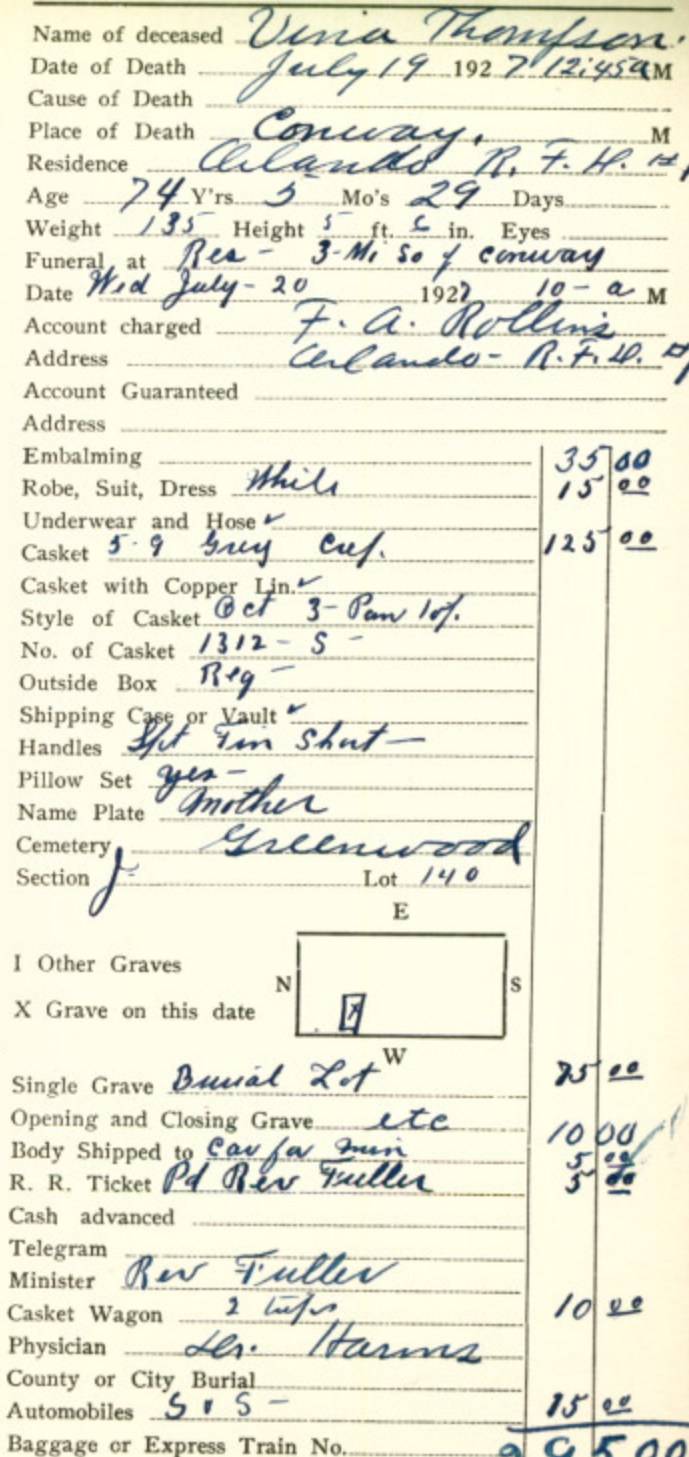 Name of deceased Vinia Thompson.
Date of Death July 19 1927 12:45a M
Cause of Death
Place of Death Conway, M
Residence Orlando R. F. D. #
Age 74 Y'rs 5 Mo's 29 Days
Weight 135 Height 5 ft. 6 in. Eyes
Funeral at Res - 3-Mi So of Conway
Date Wed July - 20 1927 10 - a M
Account charged F. A. Rollins
Address Orlando - R. F. D. #
Account Guaranteed
Address
Embalming 35 00
Robe, Suit, Dress White 15 00
Underwear and Hose ✓
Casket 5-9 Grey 125 00
Casket with Copper Lin. ✓
Style of Casket Oct 3-Pan
No. of Casket 1312 - S -
Outside Box Reg -
Shipping Case or Vault ✓
Handles Short -
Pillow Set yes -
Name Plate Mother
Cemetery Greenwood
Section J- Lot 140
E
I Other Graves
N S
X Grave on this date X
W
Single Grave Burial Lot 75 00
Opening and Closing Grave etc 10 00
Body Shipped to Car for min 5 00
R. R. Ticket Pd Rev Fuller 5 00
Cash advanced
Telegram
Minister Rev Fuller
Casket Wagon 2 trips 10 00
Physician Dr. Harms
County or City Burial
Automobiles S 15 00
Baggage or Express Train No. 295 00